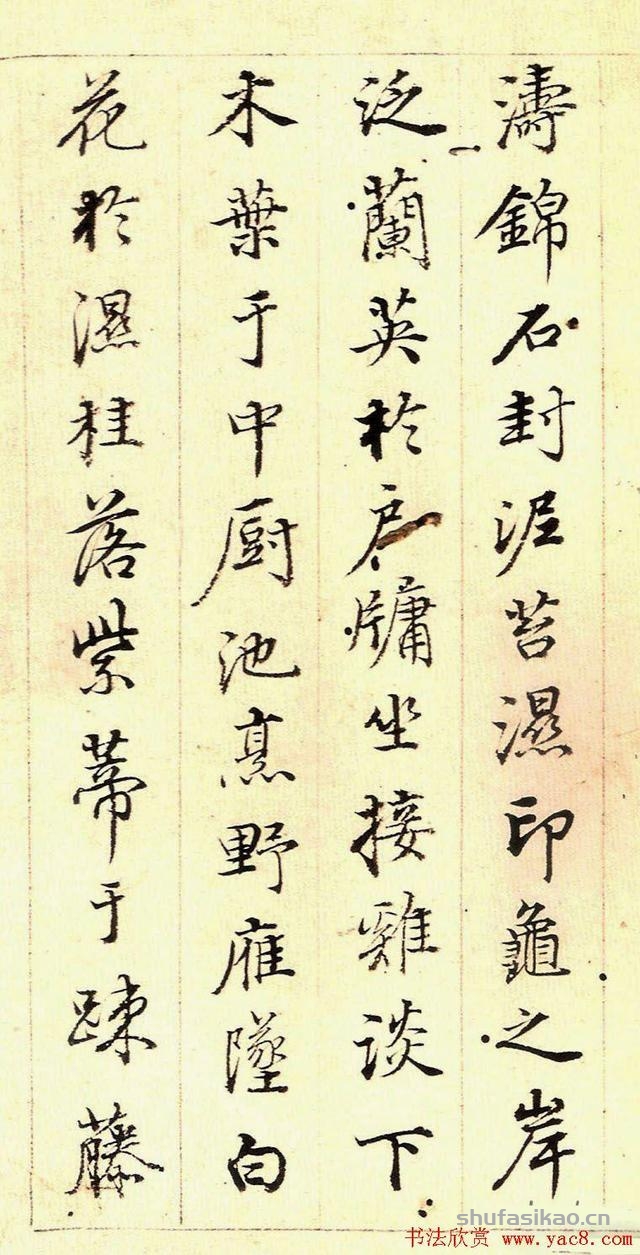 濤錦石封泥苔濕印龜之岸
泛蘭英於户牖坐接雞談下
木葉于中厨池烹野雁墜白
花於濕桂落紫蔕于疎藤
shufasikao.cn
书法欣赏 www.yac8.com